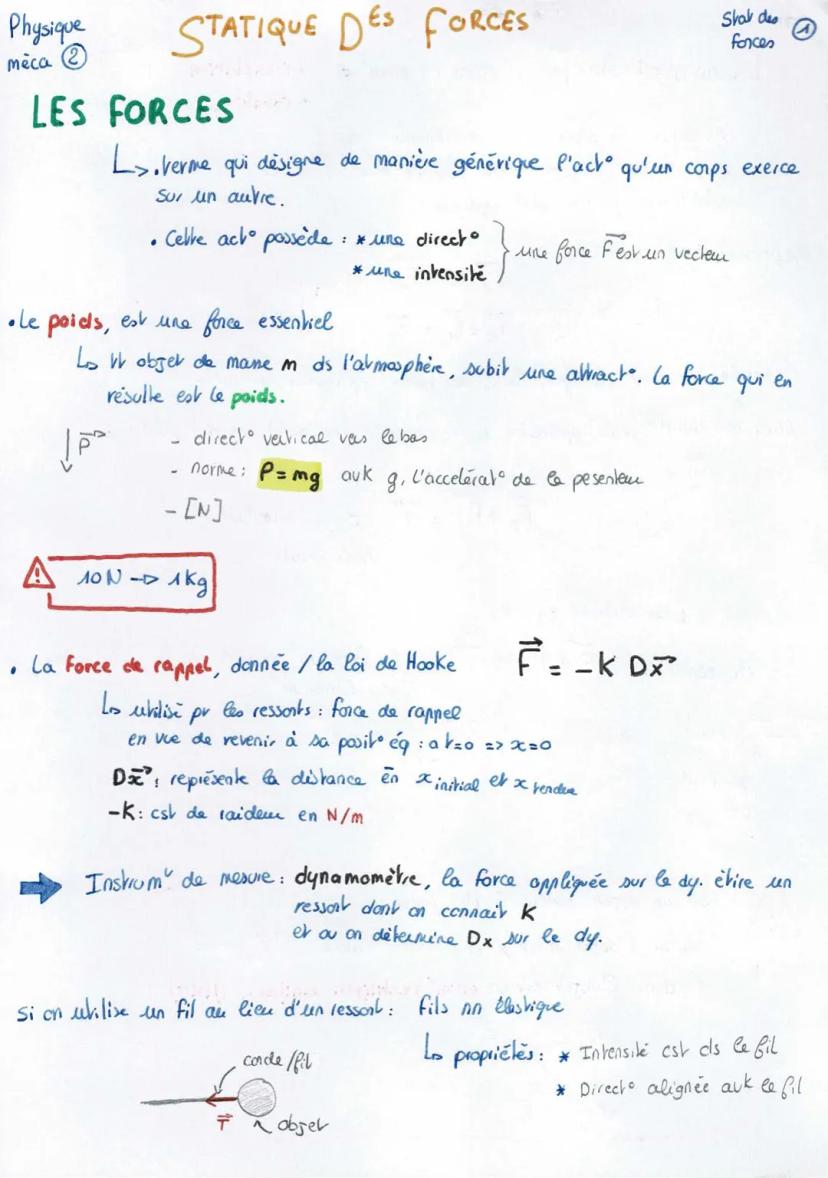 Physique
méca ②
STATIQUE DES FORCES
Stat des
forces ①
LES FORCES
↳ . terme qui désigne de manière générique l'act° qu'un corps exerce
sur un autre.
• Cette act° possède : * une direct°
* une intensité
} une force F⃗ est un vecteur
• Le poids, est une force essentiel
↳ tt objet de masse m ds l'atmosphère, subit une attract°. La force qui en
résulte est le poids.
↓ P⃗
- direct° vertical vers le bas
- norme : P = mg avk g, l'accelérat° de la pesenteur
- [N]
⚠ 10 N → 1 Kg
• La Force de rappel, donnée / la loi de Hooke F⃗ = -K Dx⃗
↳ utilisé pr les ressorts : force de rappel
en vue de revenir à sa posit° éq : a t=0 => x=0
Dx⃗ : représente la distance en x initial et x tendue
-K : cst de raideur en N/m
➡ Instrumt de mesure : dynamomètre, la force appliquée sur le dy. étire un
ressort dont on connait K
et ou on détermine Dx sur le dy.
Si on utilise un fil au lieu d'un ressort : fils nn élastique
↳ propriétés : * Intensité cst ds le fil
* Direct° alignée avk le fil
corde/fil
T⃗
objet